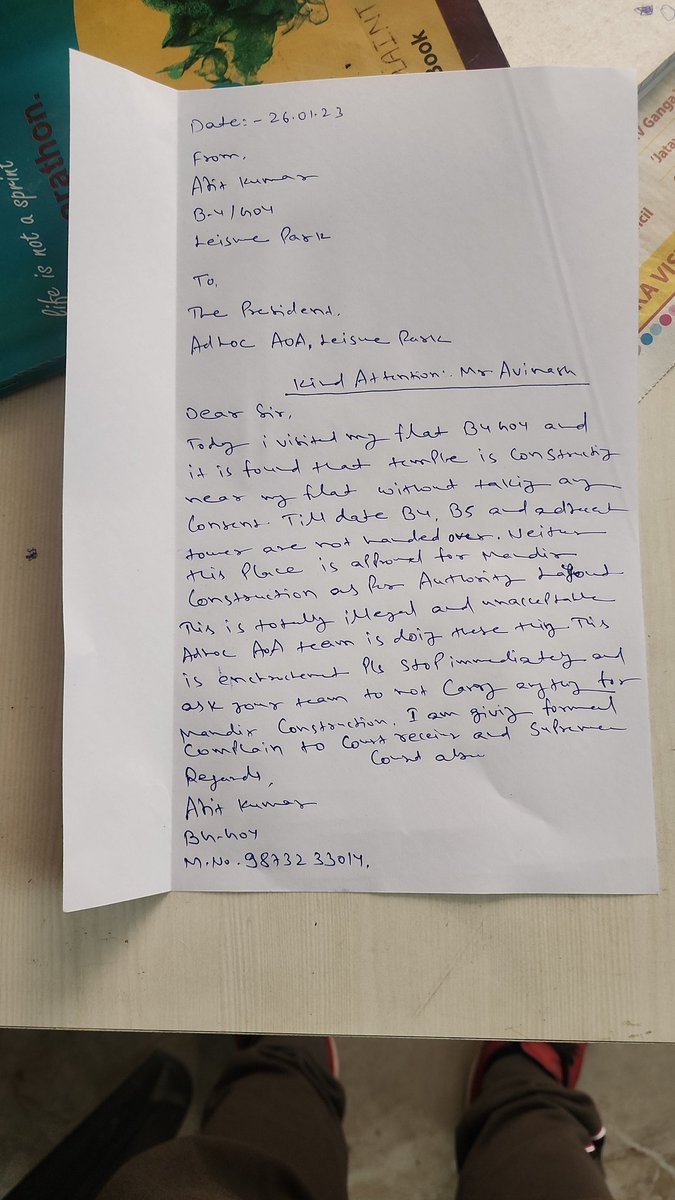 life is not a sprint
arathon.
LAINT
Book
V Ganga
'Jata
cil
KA VIS
Date:- 26.01.23
From,
Ajit Kumar
B-4/404
Leisure Park
To,
The President,
Adhoc AOA, Leisure Park
Kind Attention:- Mr Avinash
Dear Sir,
Today i visited my flat B4 404 and
it is found that temple is constructig
near my flat without takig any
Consent. Till date B4, B5 and adjucat
tower are not handed over. Neither
this Place is approved for Mandir
Construction as Per Authority Layout
This is totally illegal and unacceptable
Adhoc AOA team is doig these thig. This
is encrochment Pls stop immediately and
ask your team to not Carry anythig for
Mandir Construction. I am givig formal
Complain to Court receiver and Supreme
Court also
Regards,
Ajit Kumar
B4-404
M.No. 9873233014.